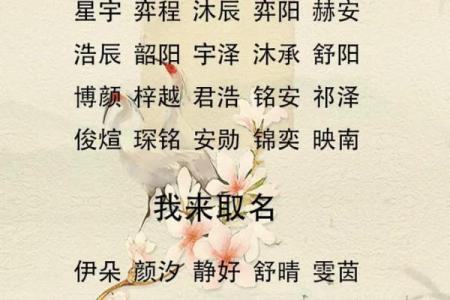 星宇 弈程 沐辰 弈阳 赫安
浩辰 韶阳 宇泽 沐承 舒阳
博颜 梓越 君浩 铭安 祁泽
俊煊 琛铭 安勋 锦奕 映南
我来取名
伊朵 颜汐 静好 舒晴 雯茵